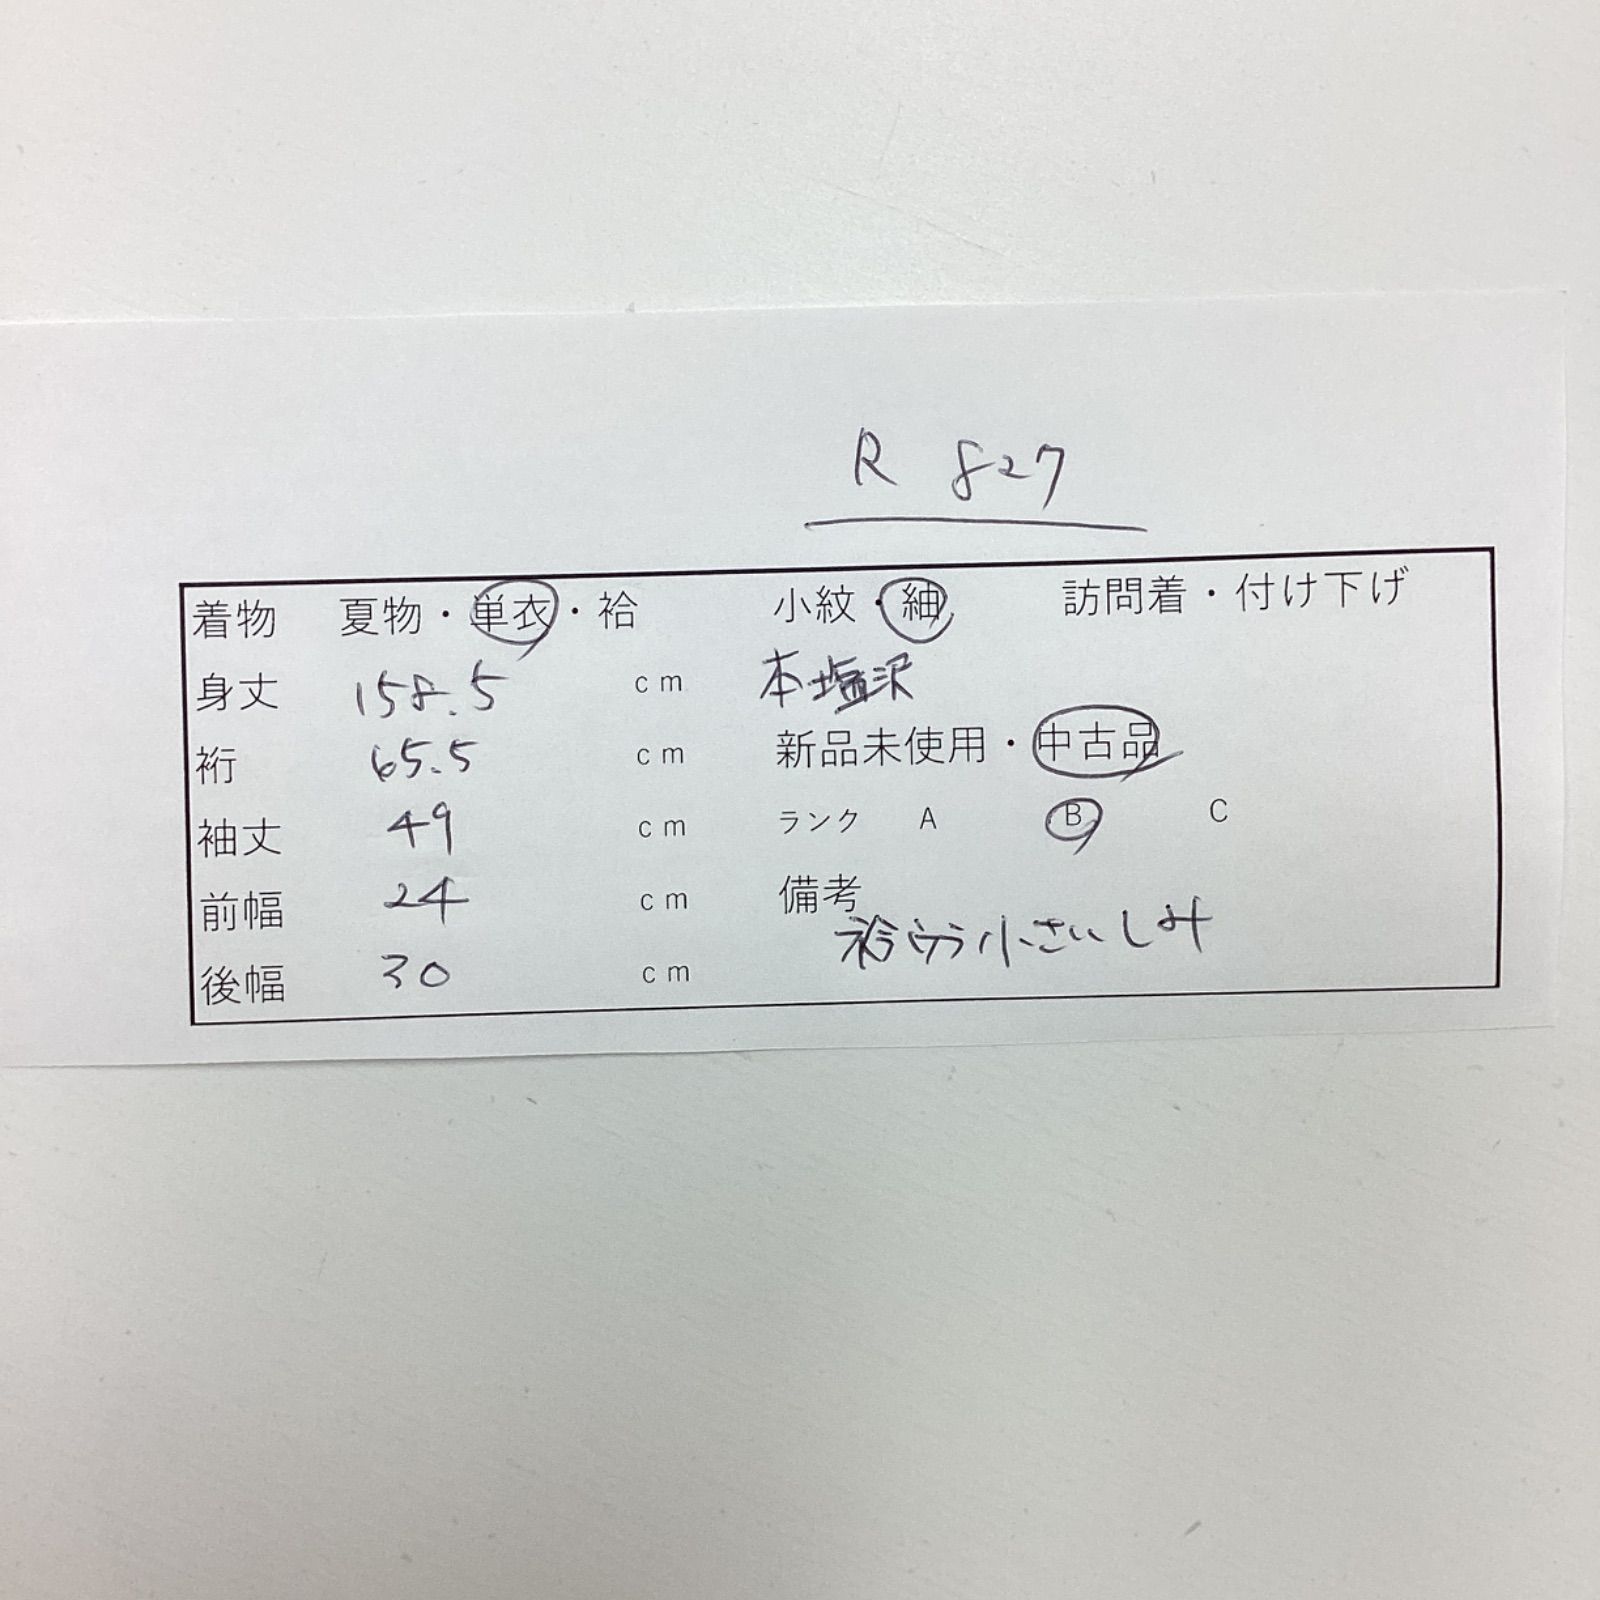 R 827
着物 夏物・単衣・袷 小紋・紬 訪問着・付け下げ
身丈 158.5 cm 本塩沢
裄 65.5 cm 新品未使用・中古品
袖丈 49 cm ランク A B C
前幅 24 cm 備考
衿 小さいしみ
後幅 30 cm